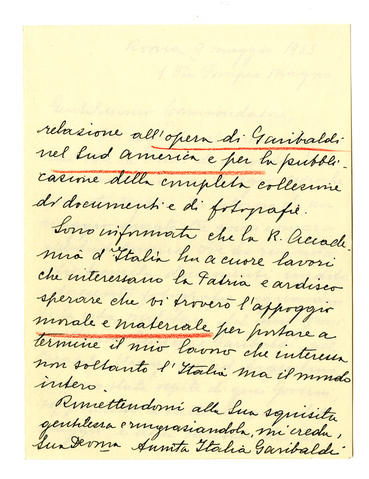 relazione all'opera di Garibaldi
nel Sud America e per la pubbli-
cazione della completa collezione
di documenti e di fotografie.
Sono informata che la R. Accade-
mia d'Italia ha a cuore lavori
che interessano la Patria e ardisco
sperare che vi troverò l'appoggio
morale e materiale per portare a
termine il mio lavoro che interessa
non soltanto l'Italia ma il mondo
intero.
Rimettendomi alla Sua squisita
gentilezza e ringraziandola, mi creda,
Sua Devma Annita Italia Garibaldi